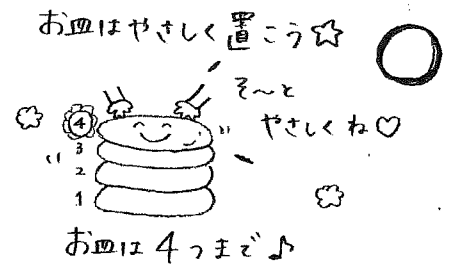 お皿はやさしく置こう☆
そ〜っと
やさしくね♡
4
3
2
1
お皿は4つまで♪